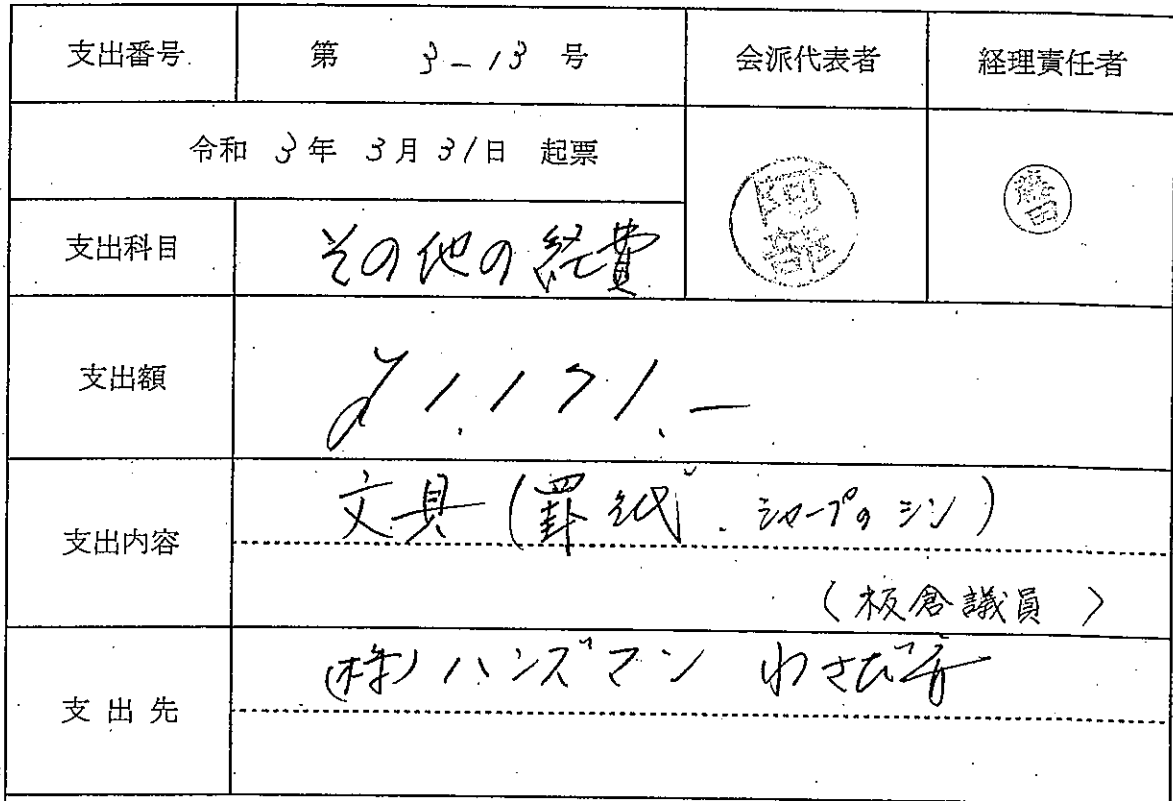 支出番号 第 3-13 号 会派代表者 経理責任者
令和 3年 3月31日 起票
阿部
支出科目 その他の経費
支出額 ¥1,171.-
支出内容 文具(罫紙、シャープのシン)
(板倉議員)
支出先 (株)ハンズマン わさだ店